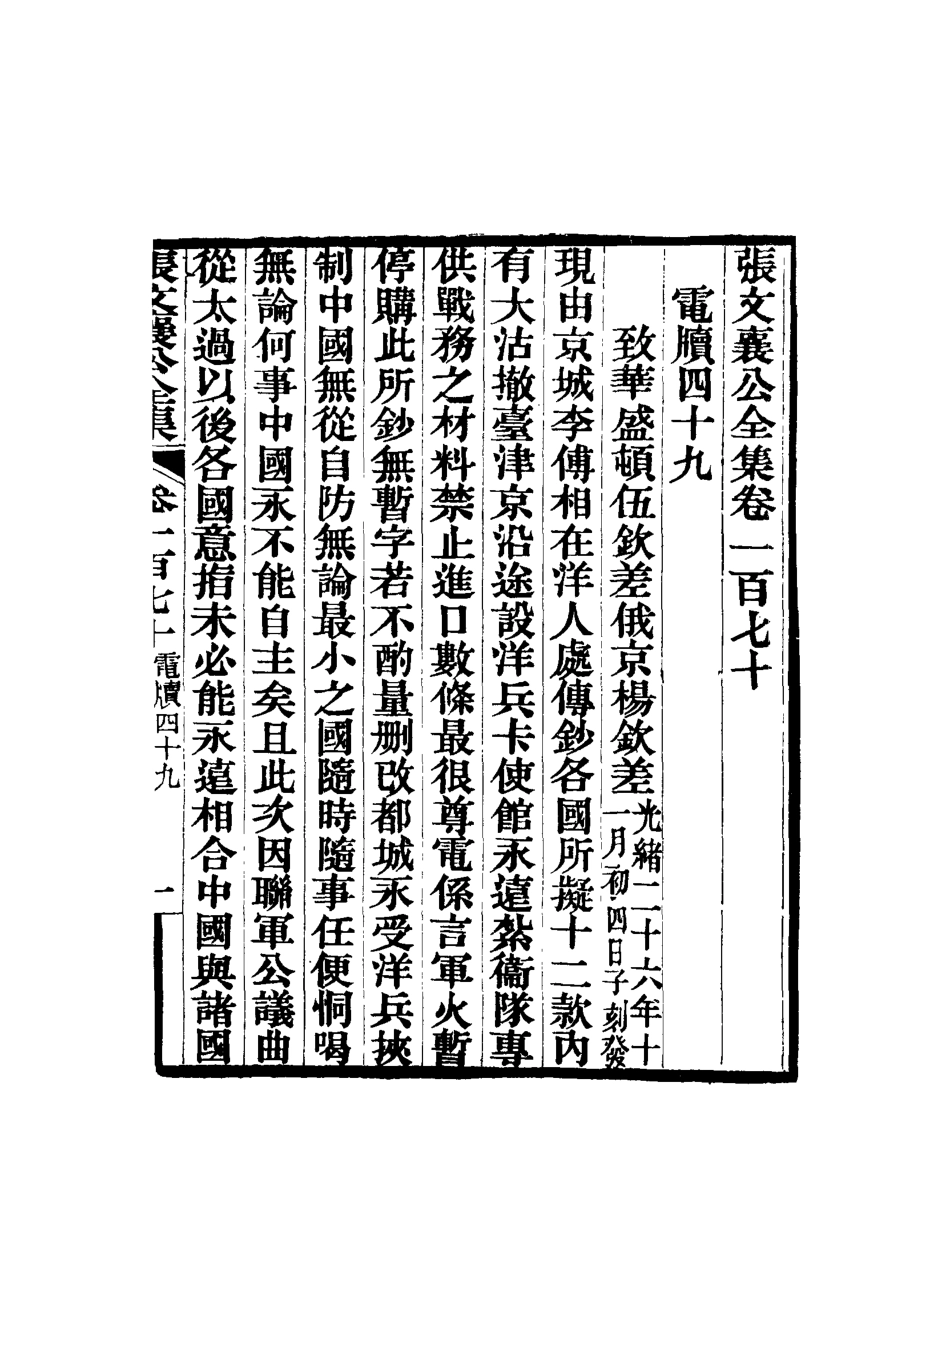 張文襄公全集卷一百七十
電牘四十九
致華盛頓伍欽差俄京楊欽差光緒二十六年十
一月初四日子刻發
現由京城李傅相在洋人處傳鈔各國所擬十二款內
有大沽撤臺津京沿途設洋兵卡使館永遠紮衞隊專
供戰務之材料禁止進口數條最很尊電係言軍火暫
停購此所鈔無暫字若不酌量刪改都城永受洋兵挾
制中國無從自防無論最小之國隨時隨事任便恫喝
無論何事中國永不能自主矣且此次因聯軍公議曲
從太過以後各國意指未必能永遠相合中國與諸國
張文襄公全集 卷一百七十 電牘四十九 一